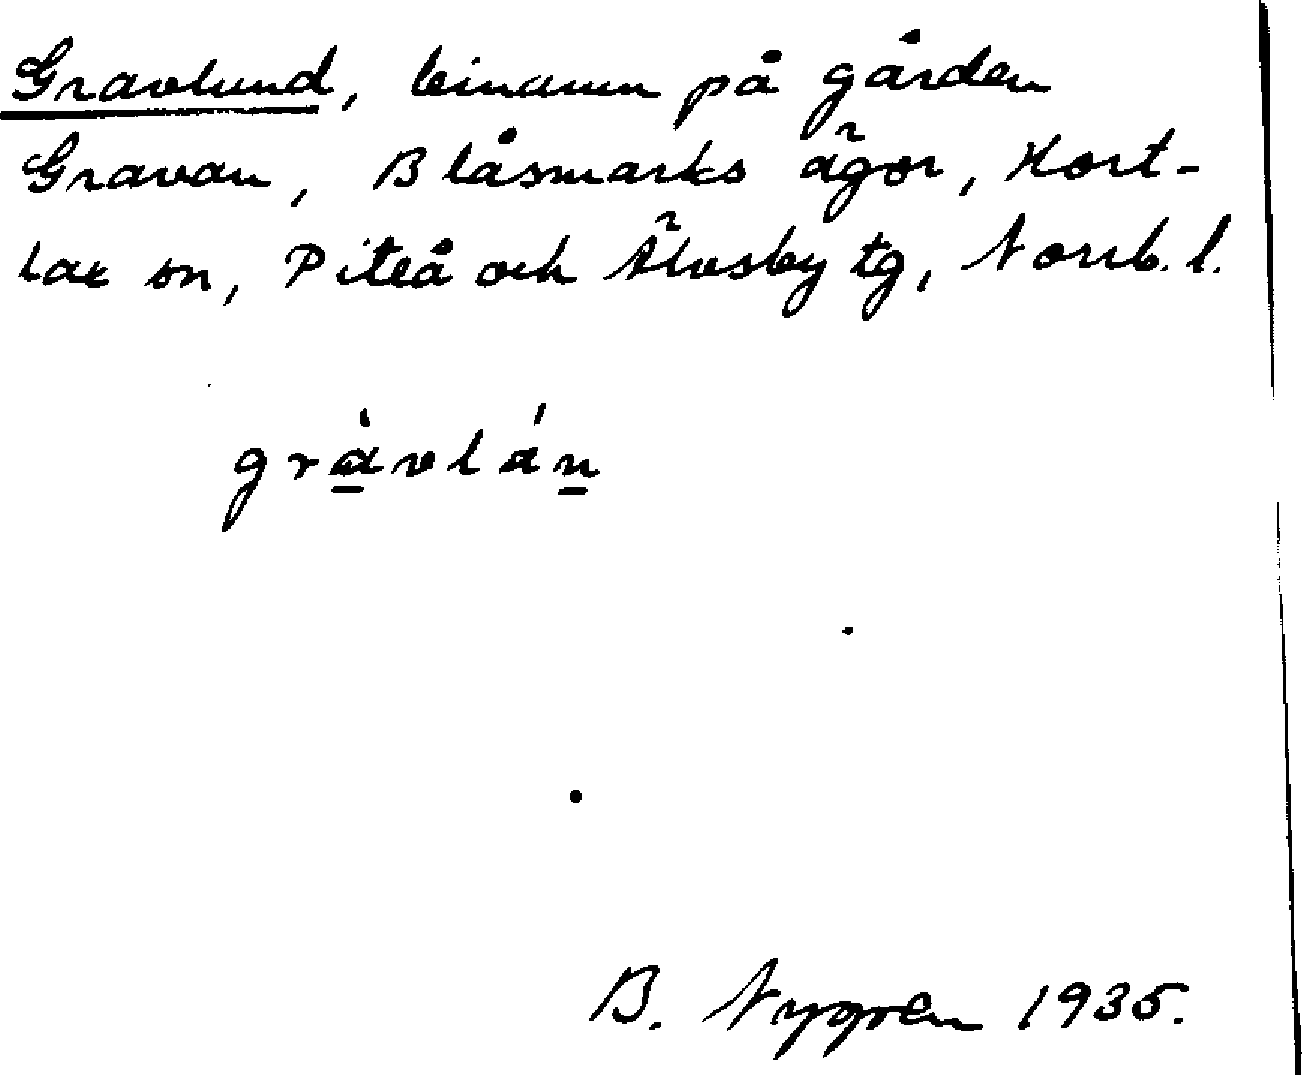 Gravlund, binamn på gården
Gravan, Blåsmarks ägor, Hort-
lax sn, Piteå och Älvsby tg, Norrb. l.
gràvlán
B. Nygren 1935.